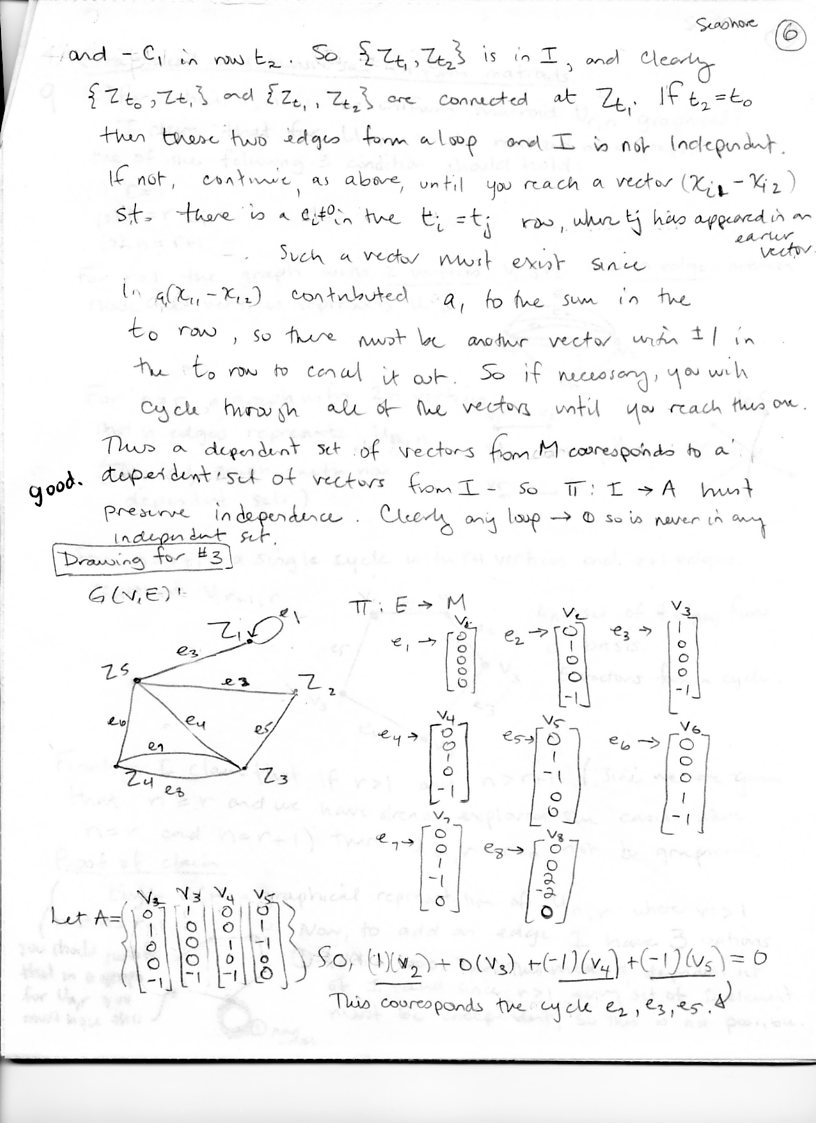 Seashore 6
and - C1 in row t2. So {Zt1, Zt2} is in I, and clearly
{Zt0, Zt1} and {Zt1, Zt2} are connected at Zt1. If t2 = t0
then these two edges form a loop and I is not independent.
If not, continue, as above, until you reach a vector (xi1 - xi2)
st. there is a ci≠0 in the ti = tj row, where tj has appeared in an
earlier
vector.
Such a vector must exist since
a1(x11 - x12) contributed a1 to the sum in the
t0 row, so there must be another vector with ±1 in
the t0 row to cancel it out. So if necessary, you will
cycle through all of the vectors until you reach this one.
Thus a dependent set of vectors from M corresponds to a
good. dependent set of vectors from I - so π: I → A must
preserve independence. Clearly any loop → 0 so is never in any
independent set.
Drawing for #3
G(V,E):
π: E → M
Z1 e1
e3
Z5 e3 Z2
e6 e4 e5
e7
Z4 e8 Z3
e1 → [0 0 0 0 0]
e2 → V2 [0 1 0 0 -1]
e3 → V3 [1 0 0 0 -1]
e4 → V4 [0 0 1 0 -1]
e5 → V5 [0 1 -1 0 0]
e6 → V6 [0 0 0 1 -1]
e7 → V7 [0 0 1 -1 0]
e8 → V8 [0 0 2 -2 0]
Let A = { V2 [0 1 0 0 -1] V3 [1 0 0 0 -1] V4 [0 0 1 0 -1] V5 [0 1 -1 0 0] }
So, (1)(v2) + 0(v3) + (-1)(v4) + (-1)(v5) = 0
This corresponds the cycle e2, e3, e5.